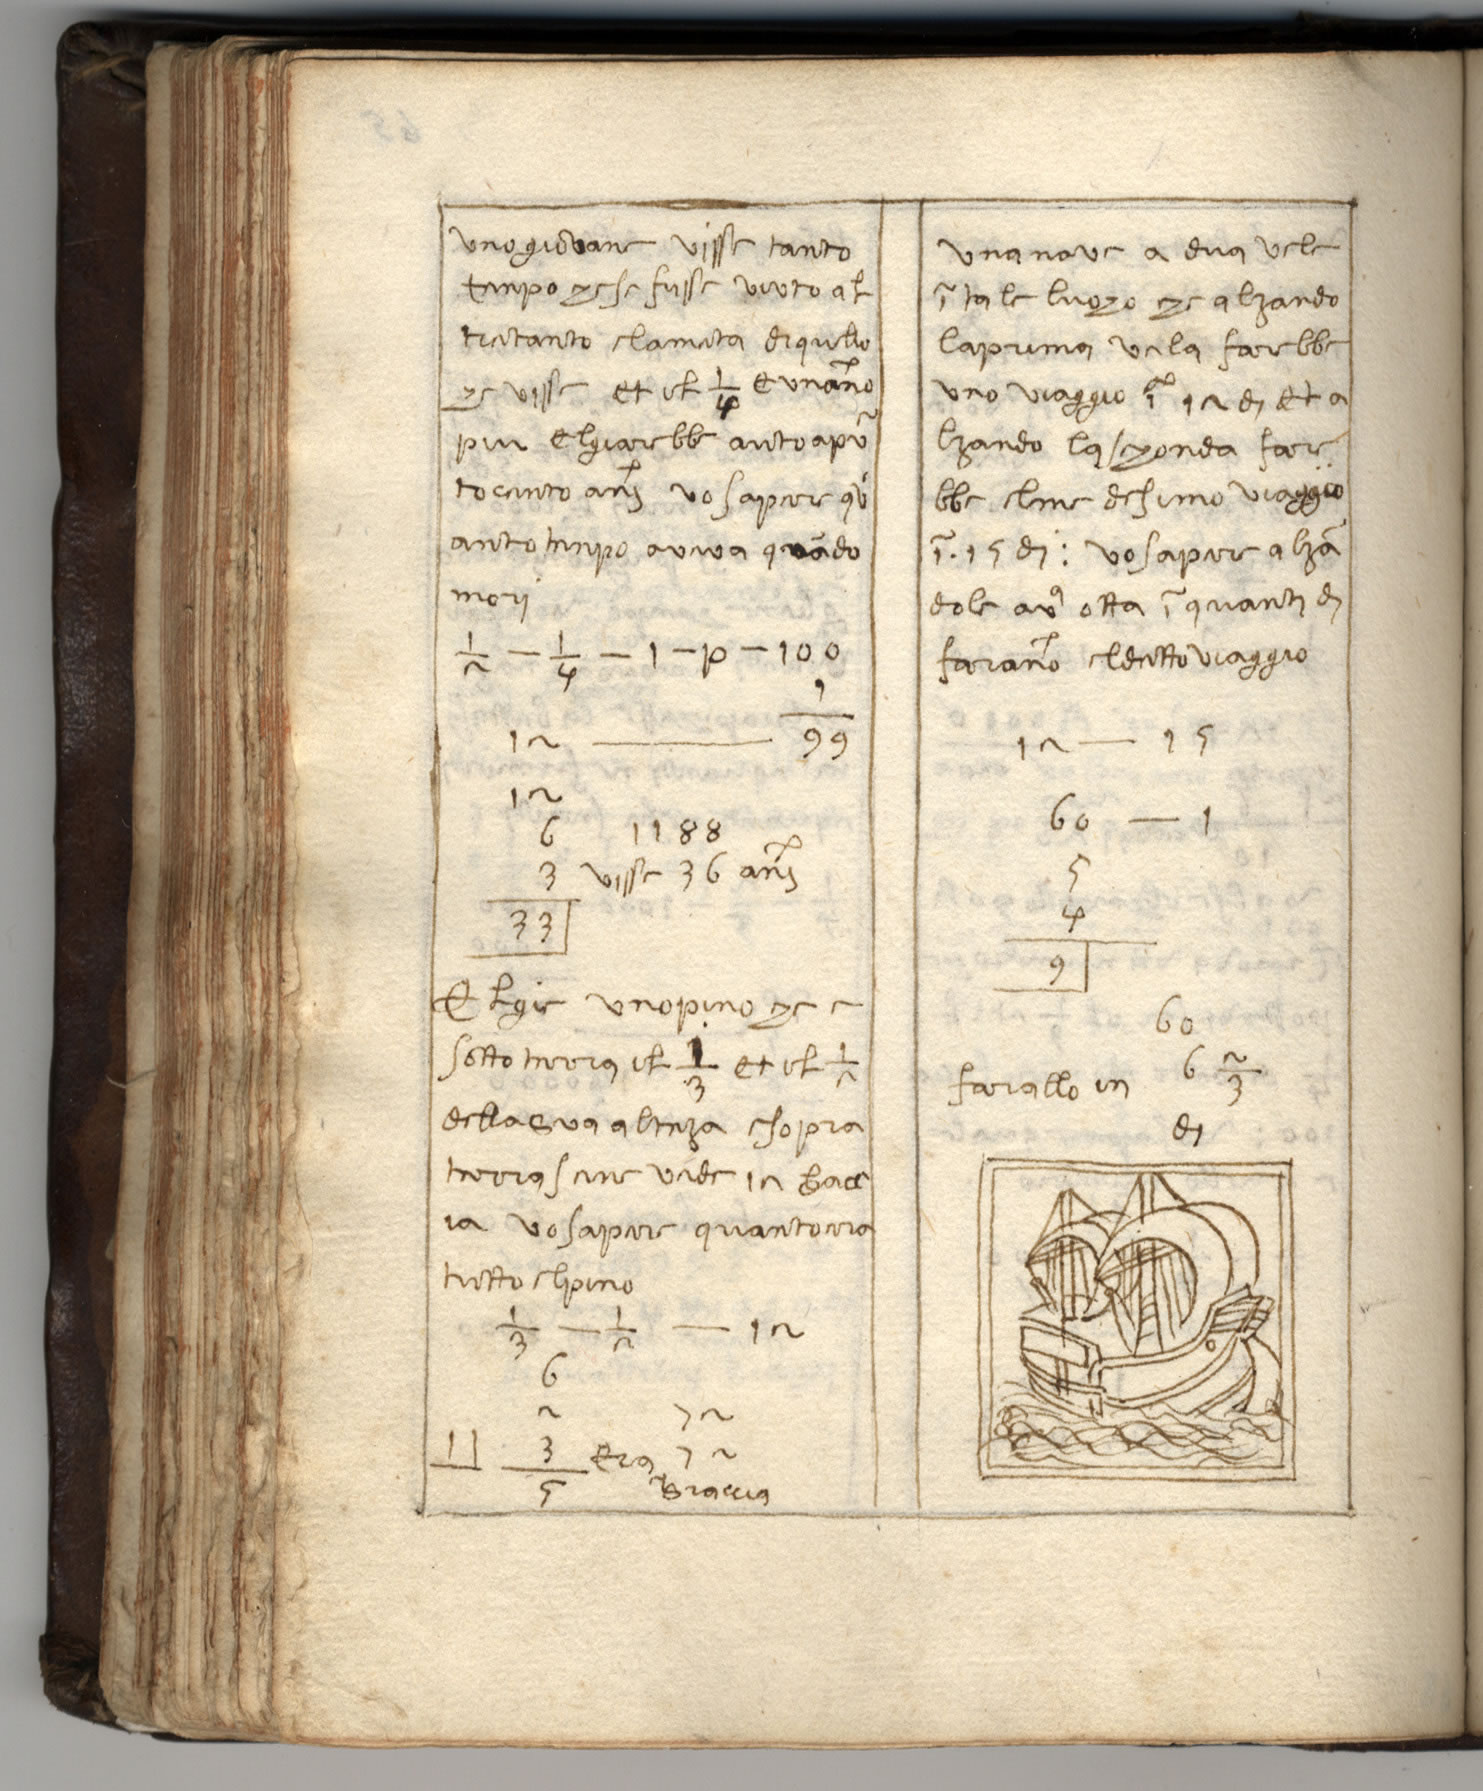 uno giovane visse tanto
tenpo che se fusse viuto al
tretanto e la meta di quello
che visse et il 1/4 e un año
piu eglj arebbe auto apũ
to cento anj vo sapere qũ
anto tenpo aveva quãdo
morj
1/2 — 1/4 — 1 — p — 100
1
12 ——— 99
12
6 1188
3 visse 36 anj
33
Eglje uno pino che e
sotto terra il 1/3 et il 1/2
della sua alteza e sopra
terra se ne vede 12 bacc
ia vo sapere quanto era
tutto el pino
1/3 — 1/2 — 12
6
2 72
11 3 Era 72
5 Braccia
una nave a dua vele
ĩ tale luogo che alzando
la prima vela farebbe
uno viaggio ĩ 12 dj et a
lzando la seconda fare
bbe el medesimo viaggio
ĩ 15 dj: vo sapere alzã
dole a otta ĩ quantj dj
farano el detto viaggio
12 — 15
60 — 1
5
4
9
60
farallo in 6 2/3
dj
65